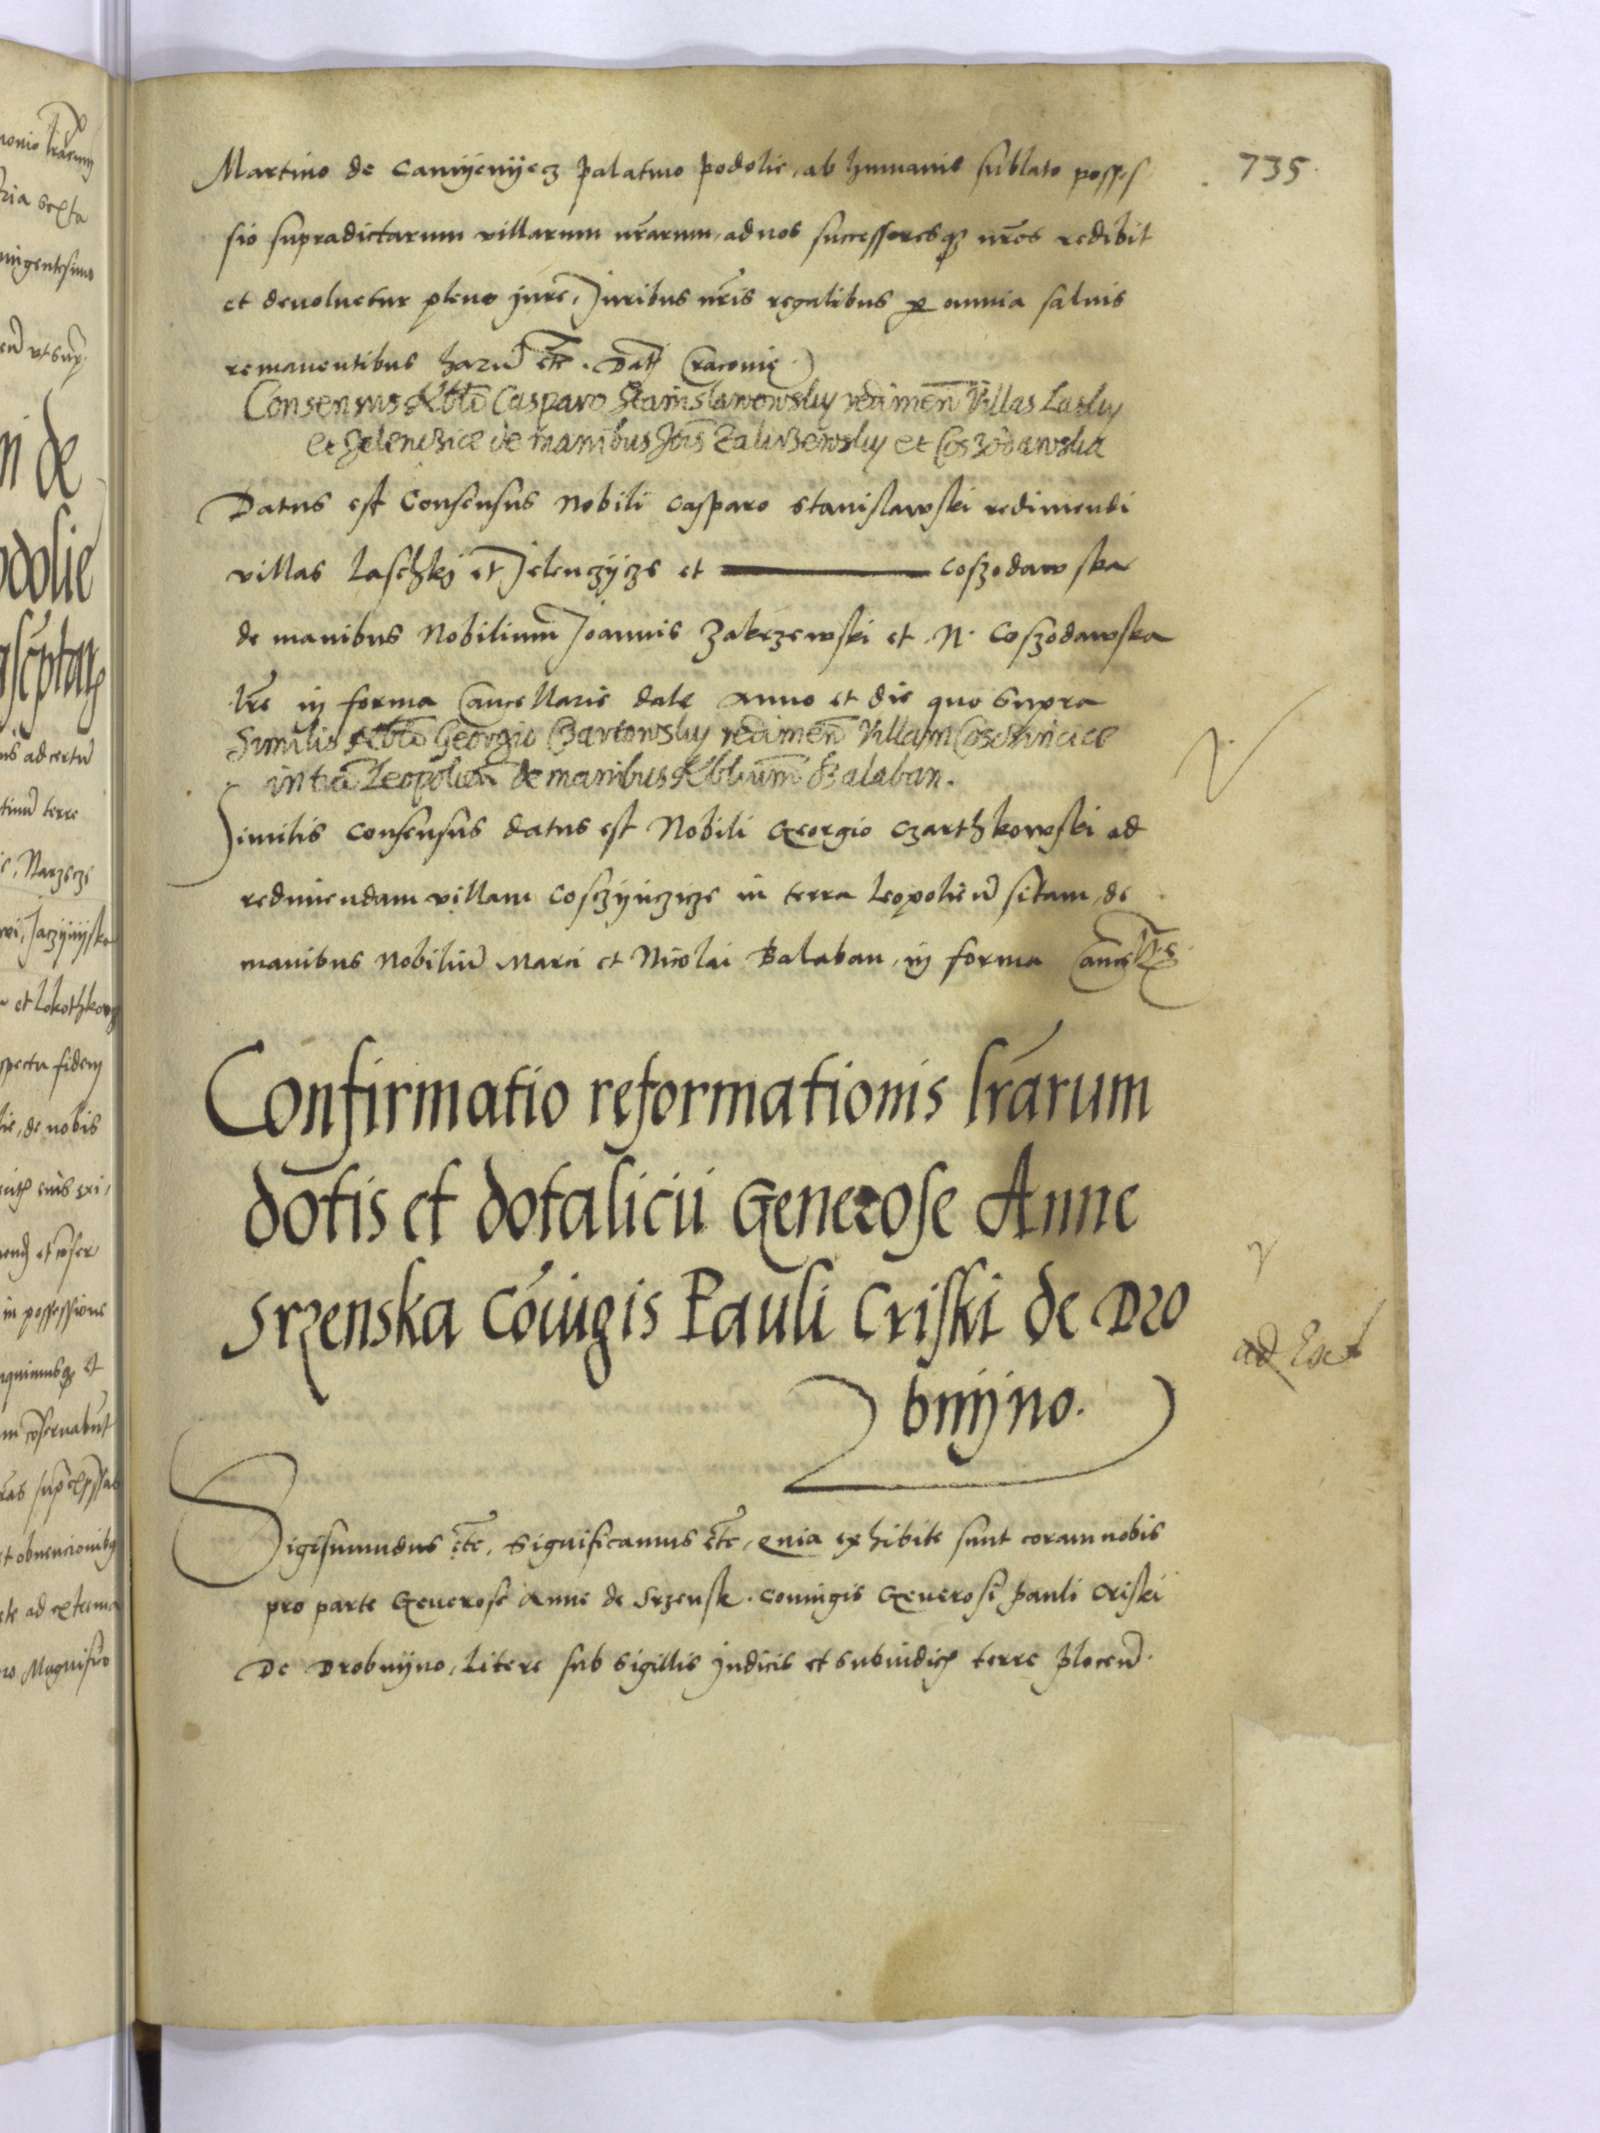 735.
Martino de Camÿenÿecz palatino podolie, ab humanis sublato posses
sio supradictarum villarum nr̃arum, ad nos successoresq3 nr̃os redibit
et devoluetur pleno jure, Juribus nr̃is regalibus per omnia salvis
remanentibus harũ etc̃. Datũ Cracovie.
Consensus Nobli Casparo Stanislawowsky redimen̄ Villas Lasky
et Jelenczice de manibus Jois̄ Zakrzewsky et Coszodawska
Datus est Consensus Nobili Casparo Stanislawski redimendi
villas Laschkj et Jelenczÿcze et coszodawska
de manibus Nobilium Joannis Zakrzewski et N. Coszodawska
lr̃e in forma Cancellarie date anno et die quo supra
Similis Nobli Georgio Czartowsky redimen̄ Villam
in tra Leopolien̄ de manibus Nobilium̄ Balaban.
Similis consensus datus est Nobili Georgio Czarthkowski ad
redimendam villam Cosczÿnczicze in terra Leopolien̄ sitam, de
manibus nobiliũ Marci et Nicolai Balaban, in forma
Confirmatio reformationis lr̃arum
dotis et dotalicii Generose Anne
Srzenska Cōiugis Pauli Criski de Dro
bnijno.
Sigismundus etc̃. Significamus etc̃, Quia exhibite sunt coram nobis
pro parte Generose Anne de Srzensk. coniugis Generosi Pauli Criski
De Drobnijno, Litere sub sigillis judicis et subiudicis terre plocen̄.
ad